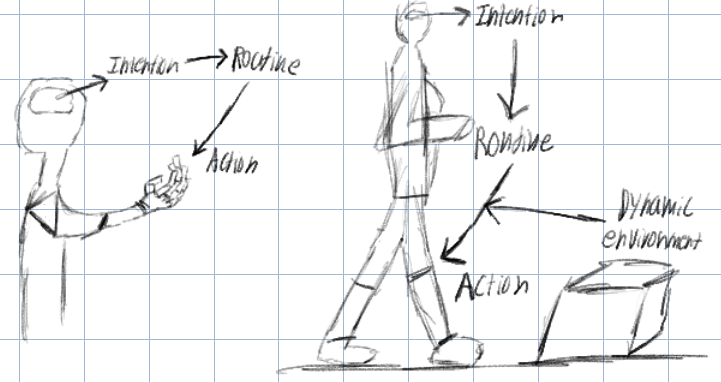 Intention
Routine
Action
Intention
Routine
Action
Dynamic
environment